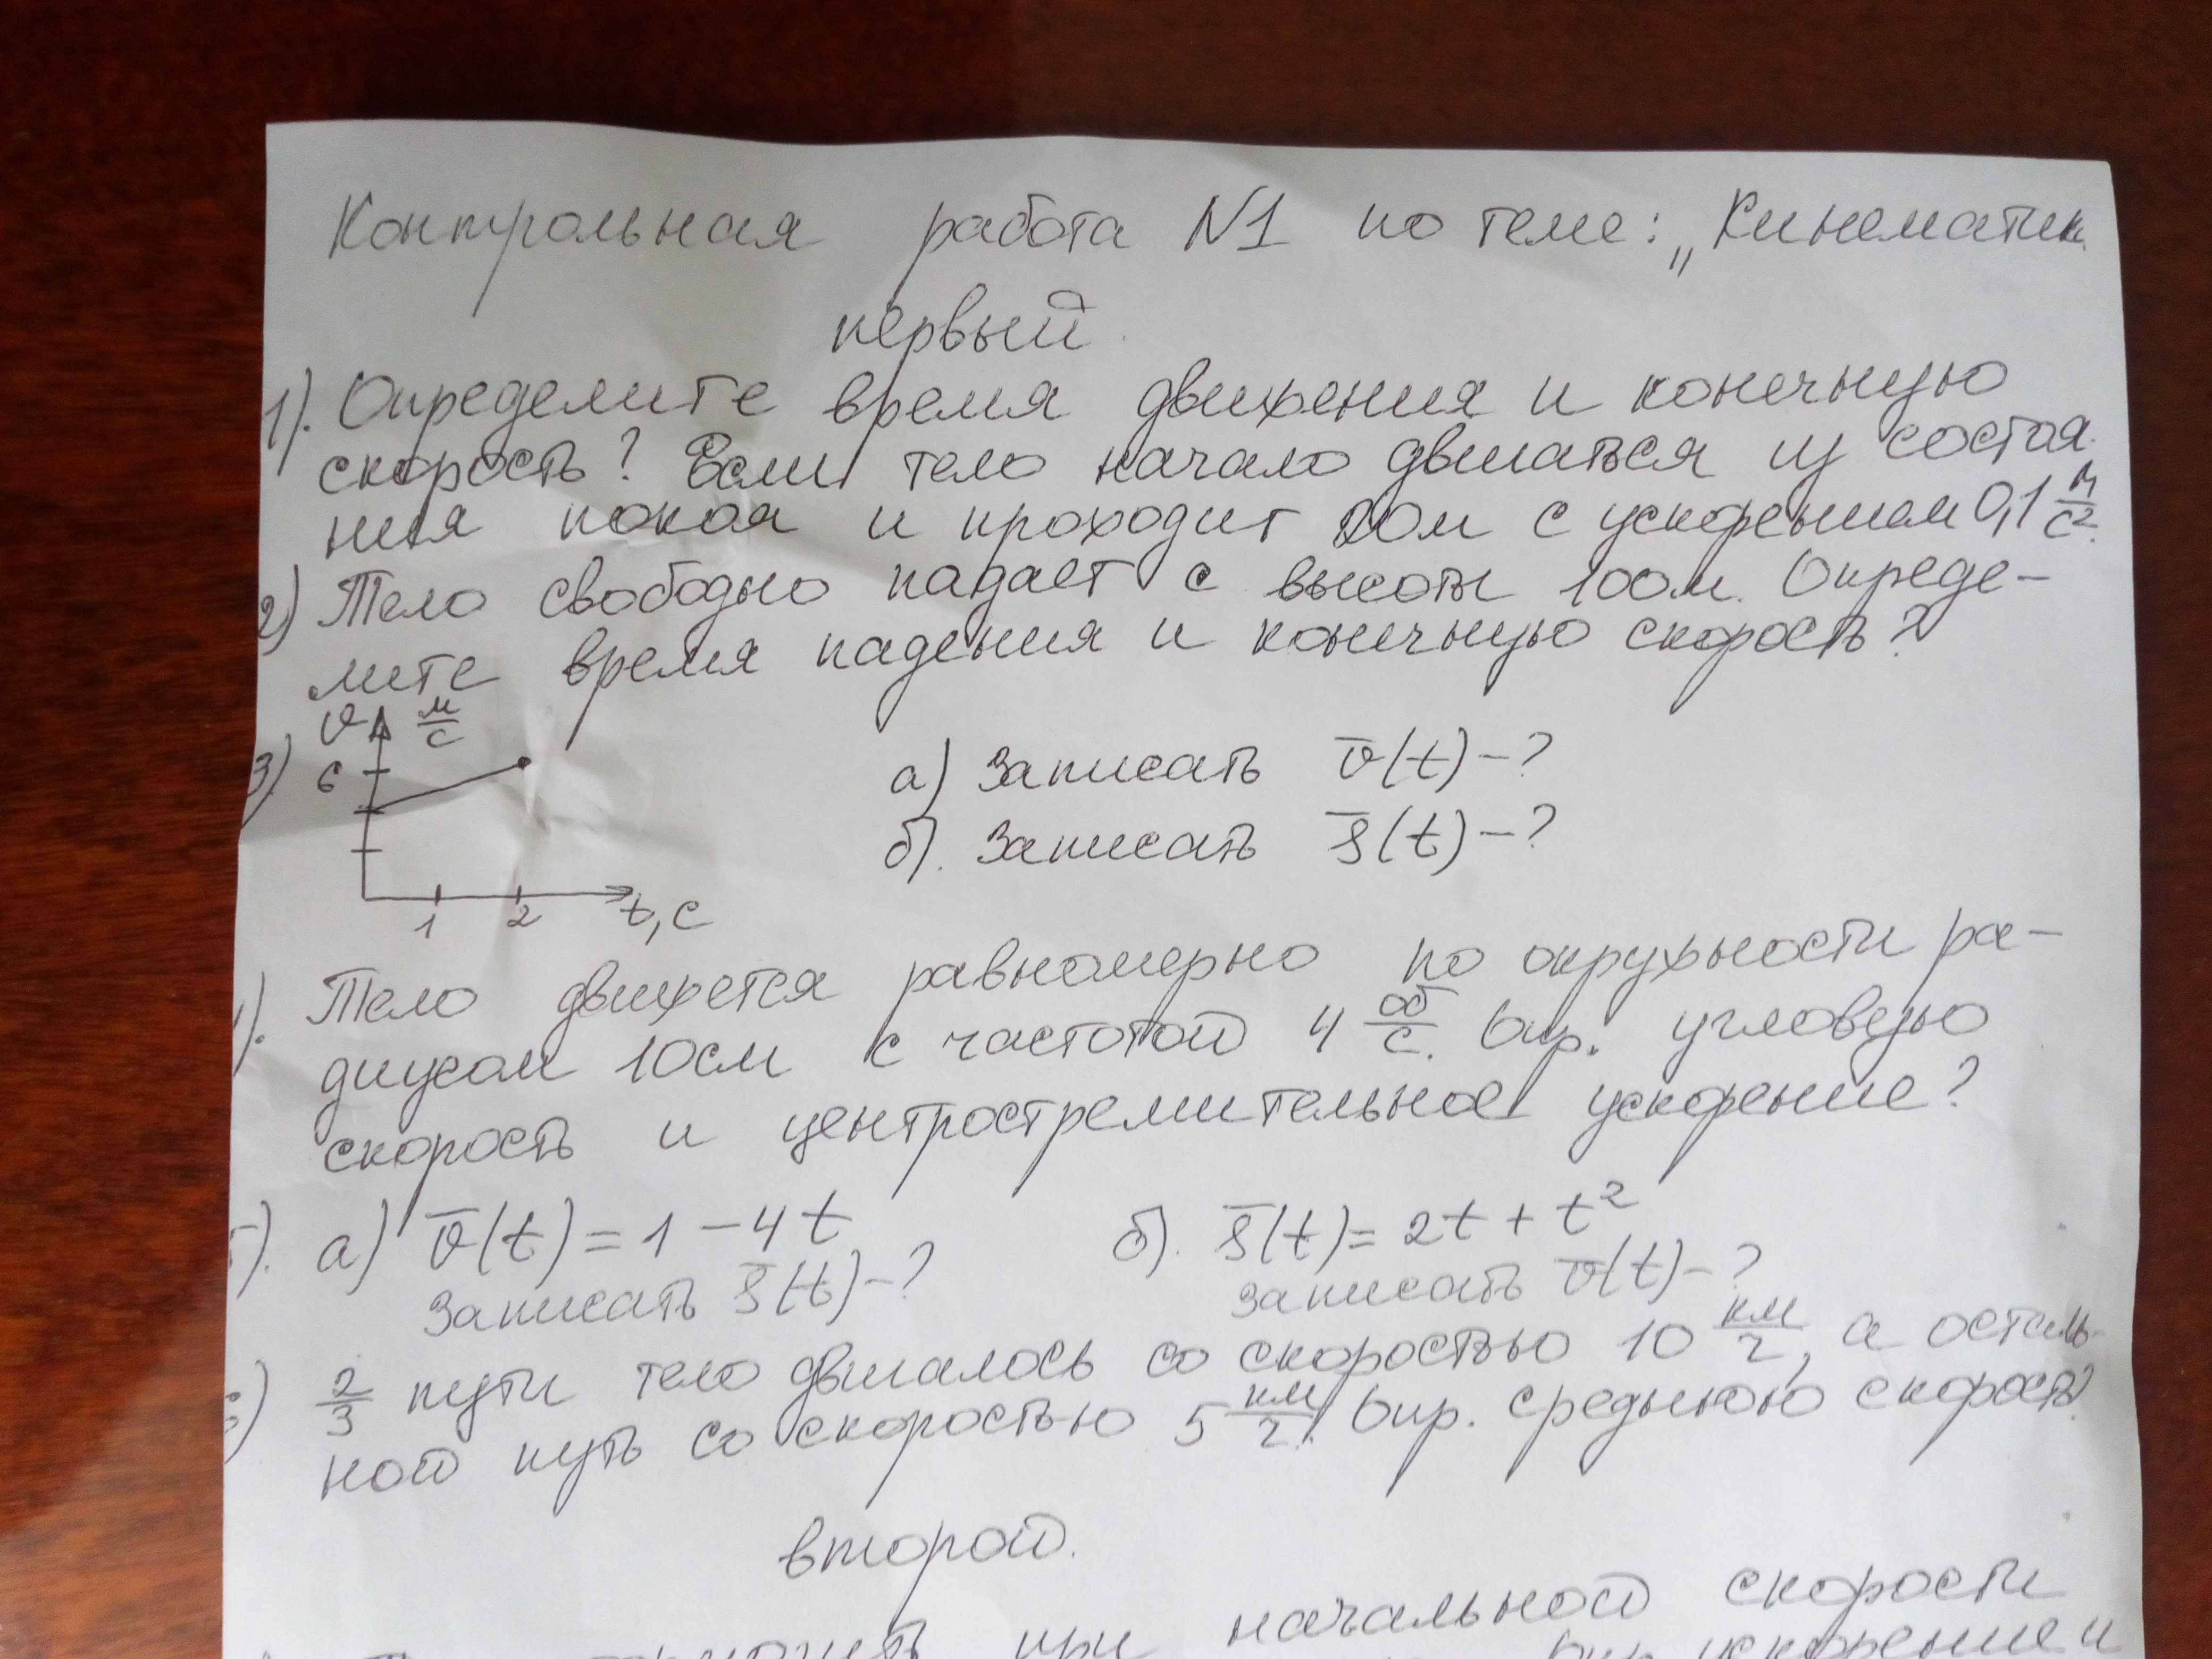 Контрольная работа N1 по теме: „Кинематик
первый.
1). Определите время движения и конечную
скорость? Если тело начало двигаться из состоя
ния покоя и проходит 20м с ускорением 0,1 м/с²
2) Тело свободно падает с высоты 100м. Опреде-
лите время падения и конечную скорость?
3) υ м/с
6
1 2 t,с
а) Записать υ̅(t) – ?
б). Записать S̅(t) – ?
). Тело движется равномерно по окружности ра-
диусом 10см с частотой 4 об/с. Опр. угловую
скорость и центростремительное ускорение?
). а) υ̅(t) = 1 – 4t б). S̅(t) = 2t + t²
Записать S̅(t) – ? Записать υ̅(t) – ?
) 2/3 пути тело двигалось со скоростью 10 км/ч, а осталь-
ной путь со скоростью 5 км/ч. Опр. среднюю скорость?
второй.
при начальной скорости
ускорение и